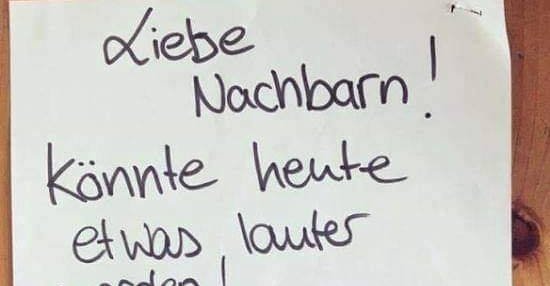 Liebe
Nachbarn!
könnte heute
etwas lauter